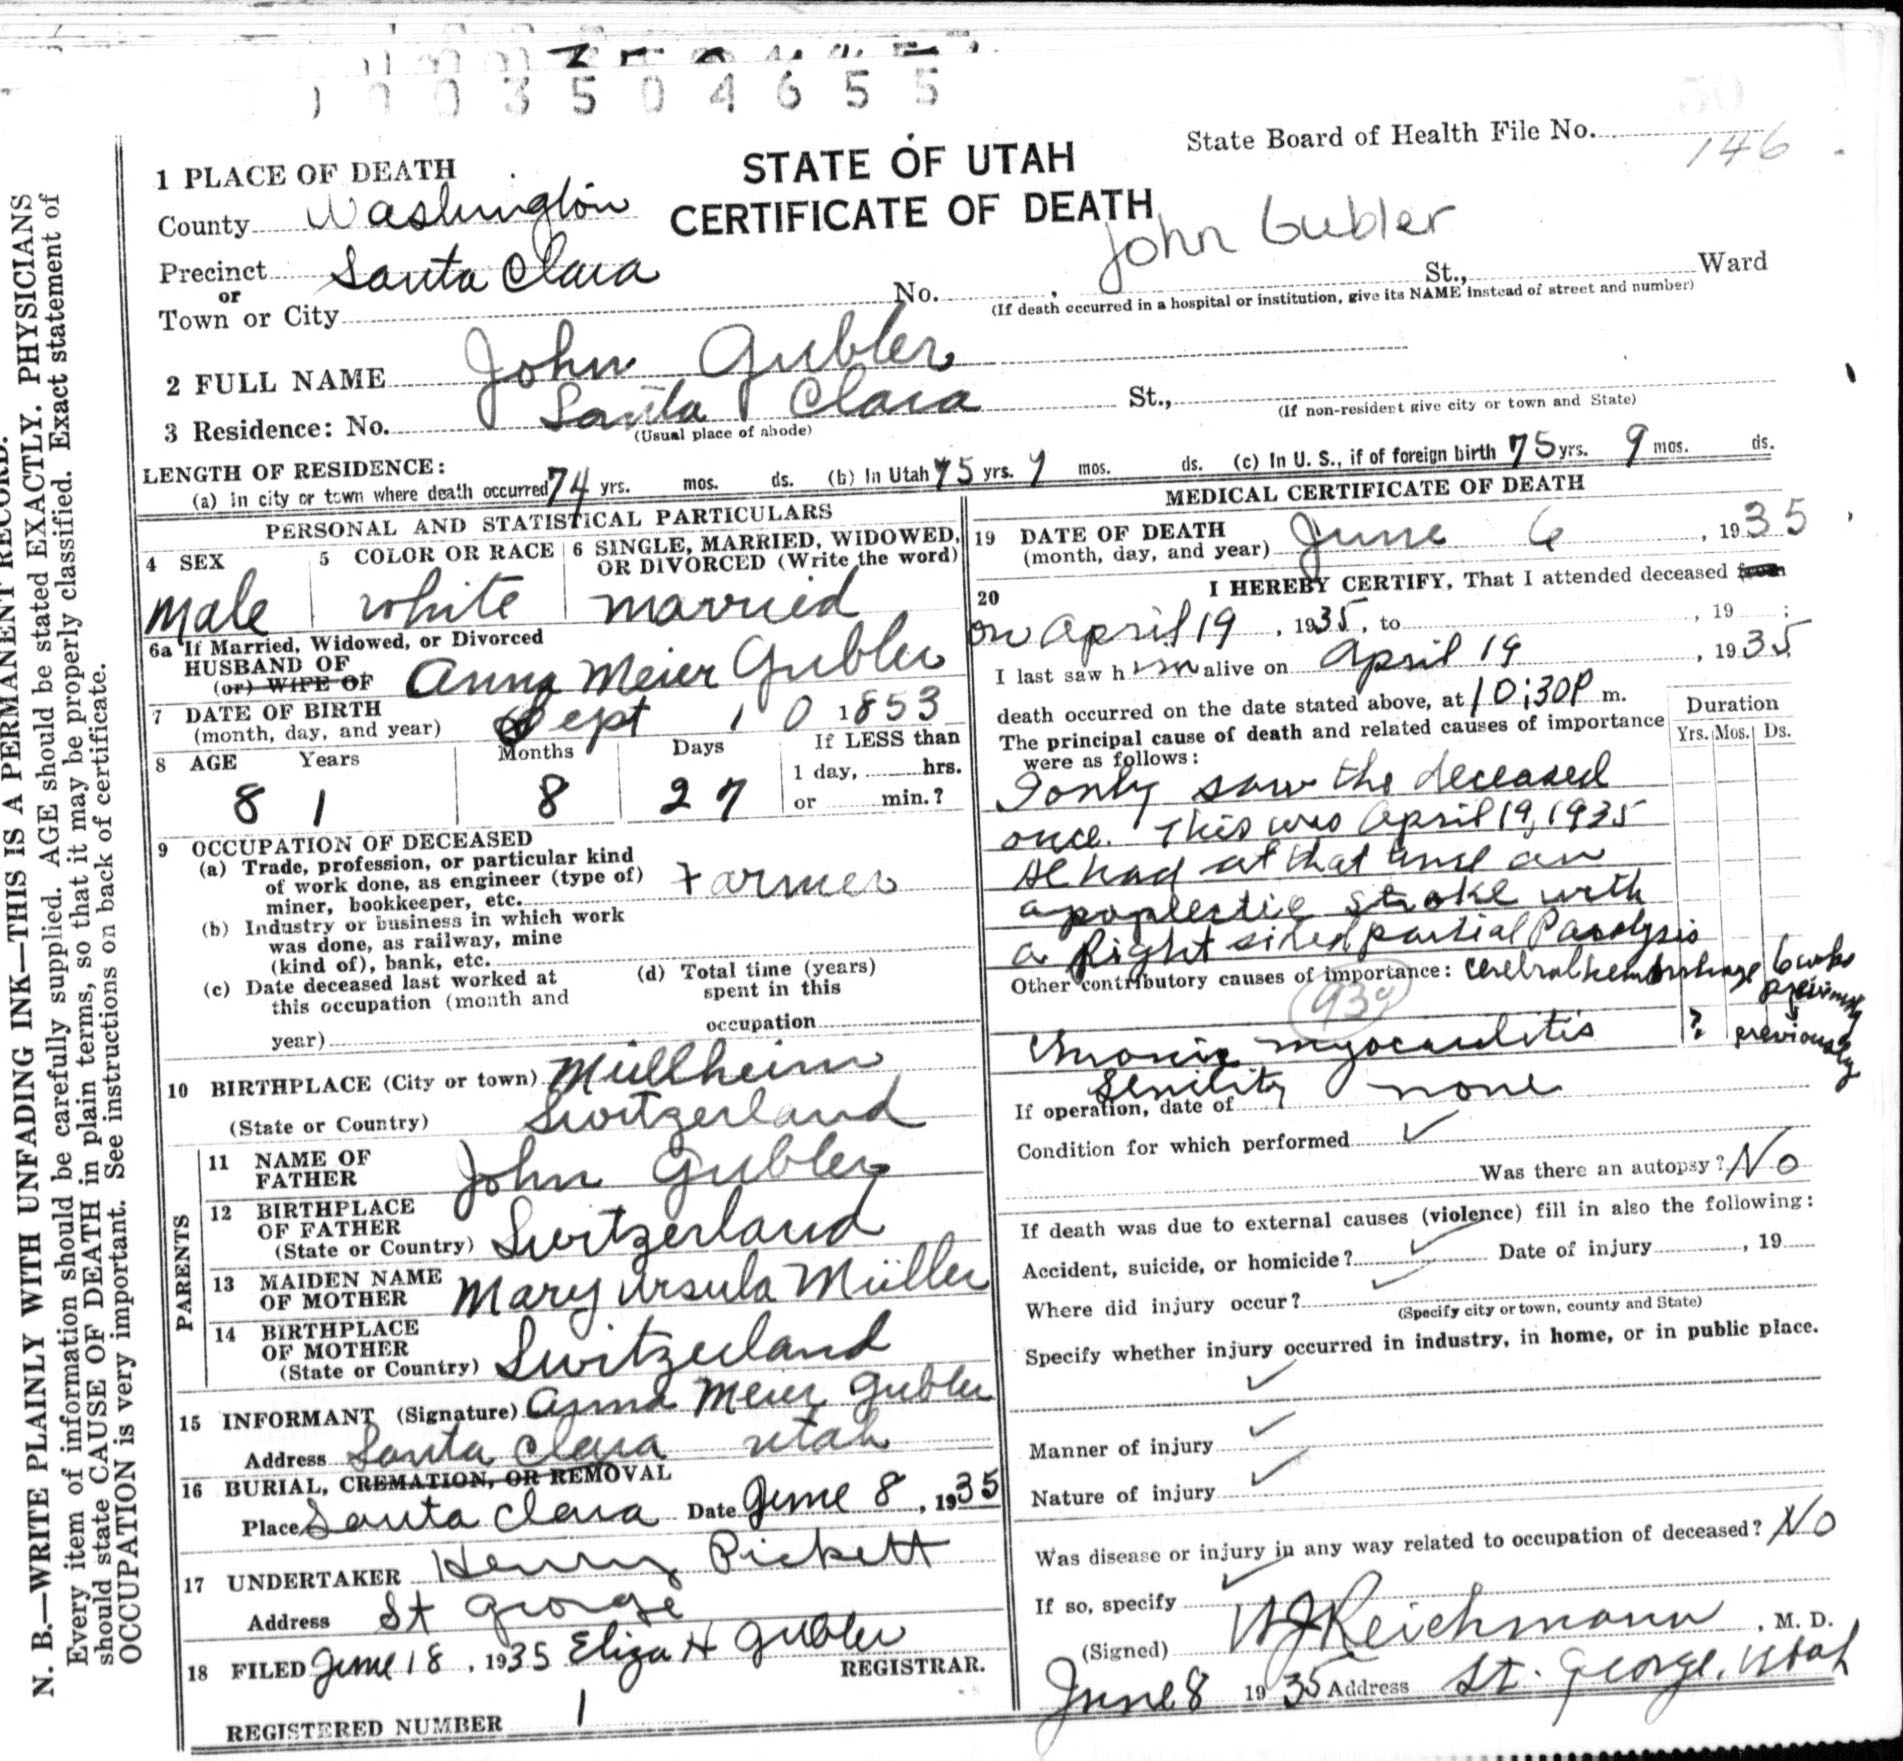 1 0 0 3 5 0 4 6 5 5
State Board of Health File No. 146
STATE OF UTAH
CERTIFICATE OF DEATH
John Gubler
1 PLACE OF DEATH
County Washington
Precinct Santa Clara
or
Town or City No. St., Ward
(If death occurred in a hospital or institution, give its NAME instead of street and number)
2 FULL NAME John Gubler
3 Residence: No. Santa Clara St.,
(Usual place of abode) (If non-resident give city or town and State)
LENGTH OF RESIDENCE:
(a) In city or town where death occurred 74 yrs. mos. ds. (b) In Utah 75 yrs. 9 mos. ds. (c) In U. S., if of foreign birth 75 yrs. 9 mos. ds.
PERSONAL AND STATISTICAL PARTICULARS
4 SEX
Male
5 COLOR OR RACE
White
6 SINGLE, MARRIED, WIDOWED,
OR DIVORCED (Write the word)
Married
6a If Married, Widowed, or Divorced
HUSBAND OF
(or) WIFE OF Anna Meier Gubler
7 DATE OF BIRTH
(month, day, and year) Sept 10 1853
8 AGE Years Months Days If LESS than
1 day, hrs.
81 8 27 or min.?
9 OCCUPATION OF DECEASED
(a) Trade, profession, or particular kind
of work done, as engineer (type of)
miner, bookkeeper, etc. Farmer
(b) Industry or business in which work
was done, as railway, mine
(kind of), bank, etc.
(c) Date deceased last worked at
this occupation (month and
year)
(d) Total time (years)
spent in this
occupation
10 BIRTHPLACE (City or town) Müllheim
(State or Country) Switzerland
PARENTS
11 NAME OF
FATHER John Gubler
12 BIRTHPLACE
OF FATHER
(State or Country) Switzerland
13 MAIDEN NAME
OF MOTHER Mary Ursula Müller
14 BIRTHPLACE
OF MOTHER
(State or Country) Switzerland
15 INFORMANT (Signature) Anna Meier Gubler
Address Santa Clara Utah
16 BURIAL, CREMATION, OR REMOVAL
Place Santa Clara Date June 8, 1935
17 UNDERTAKER Henry Pickett
Address St George
18 FILED June 18, 1935 Eliza H Gubler
REGISTRAR.
REGISTERED NUMBER 1
MEDICAL CERTIFICATE OF DEATH
19 DATE OF DEATH
(month, day, and year) June 6, 1935
20 I HEREBY CERTIFY, That I attended deceased from
on April 19, 1935, to , 19 ;
I last saw him alive on April 19, 1935
death occurred on the date stated above, at 10:30P m.
The principal cause of death and related causes of importance
were as follows:
Duration
Yrs. Mos. Ds.
I only saw the deceased
once. This was April 19, 1935
He had at that time an
apoplectic stroke with
a Right sided partial Paralysis
Other contributory causes of importance: Cerebral hemorrhage 6 wks
previously
93c
Chronic myocarditis ? previously
Senility
If operation, date of none
Condition for which performed
Was there an autopsy? No
If death was due to external causes (violence) fill in also the following:
Accident, suicide, or homicide? Date of injury , 19
Where did injury occur?
(Specify city or town, county and State)
Specify whether injury occurred in industry, in home, or in public place.
Manner of injury
Nature of injury
Was disease or injury in any way related to occupation of deceased? No
If so, specify
(Signed) W J Reichmann, M. D.
June 8 1935 Address St. George, Utah
N. B.—WRITE PLAINLY WITH UNFADING INK—THIS IS A PERMANENT RECORD.
Every item of information should be carefully supplied. AGE should be stated EXACTLY. PHYSICIANS
should state CAUSE OF DEATH in plain terms, so that it may be properly classified. Exact statement of
OCCUPATION is very important. See instructions on back of certificate.